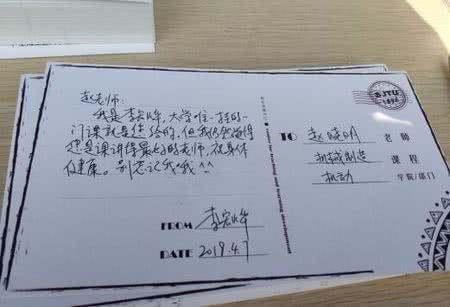 赵老师：
我是李宏峰，大学唯一挂的一
门课就是您给的，但我仍然觉得
您是课讲得最好的老师，祝身体
健康。别忘记我哦^^
SJTU
1896
TO 赵晓明 老师
机械制造 课程
机动 学院/部门
FROM 李宏峰
DATE 2019.4.7